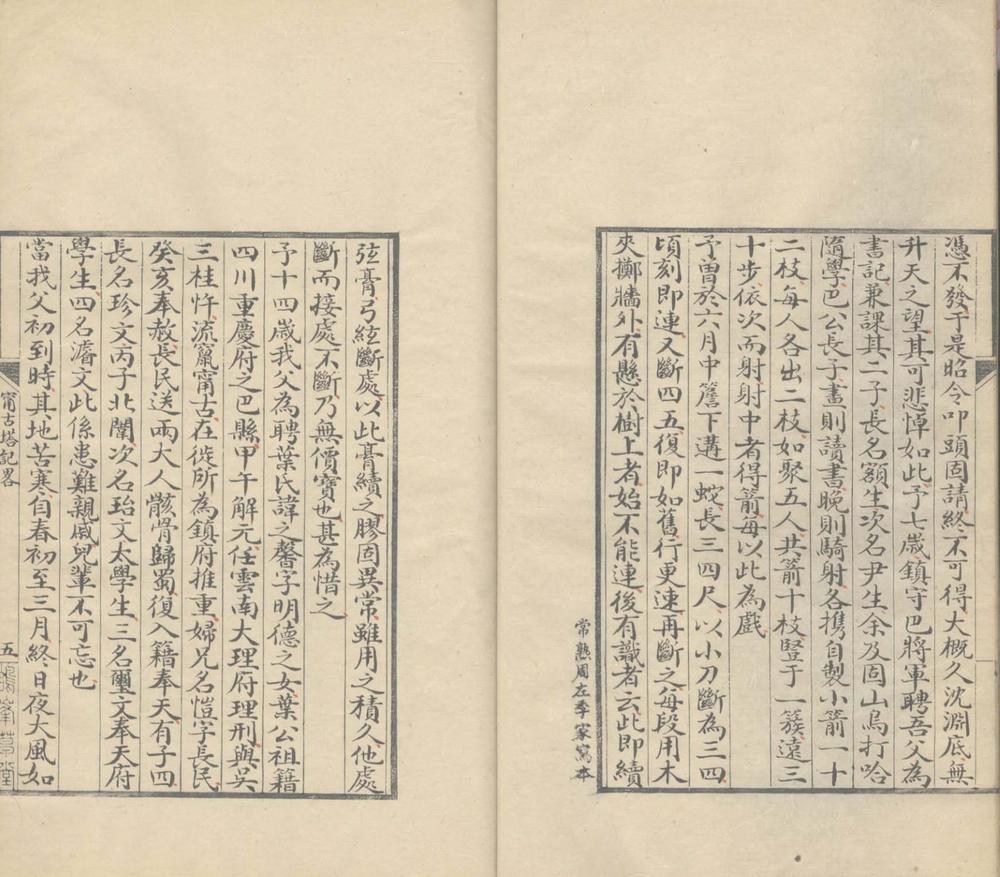 憑不發于是昭令叩頭固請終不可得大概久沈淵底無
升天之望其可悲悼如此予七歲鎮守巴將軍聘吾父為
書記兼課其二子長名額生次名尹生余及固山烏打哈
隨學巴公長子晝則讀書晚則騎射各携自製小箭一十
二枝每人各出二枝如聚五人共箭十枝豎于一簇遠三
十步依次而射射中者得箭每以此為戲
予曾於六月中簷下遘一蛇長三四尺以小刀斷為三四
頃刻即連又斷四五復即如舊行更速再斷之每段用木
夾擲牆外有懸於樹上者始不能連後有識者云此即續
常熟周左季家寫本
弦膏弓絃斷處以此膏續之膠固異常雖用之積久他處
斷而接處不斷乃無價寶也甚為惜之
予十四歲我父為聘葉氏諱之馨字明德之女葉公祖籍
四川重慶府之巴縣甲午解元任雲南大理府理刑與吳
三桂忤流竄甯古在徙所為鎮府推重婦兄名愷字長民
癸亥奉赦長民送兩大人骸骨歸蜀復入籍奉天有子四
長名珍文丙子北闈次名珆文太學生三名璽文奉天府
學生四名濬文此係患難親戚兒輩不可忘也
當我父初到時其地苦寒自春初至三月終日夜大風如
甯古塔記畧
五
鴿峯草堂